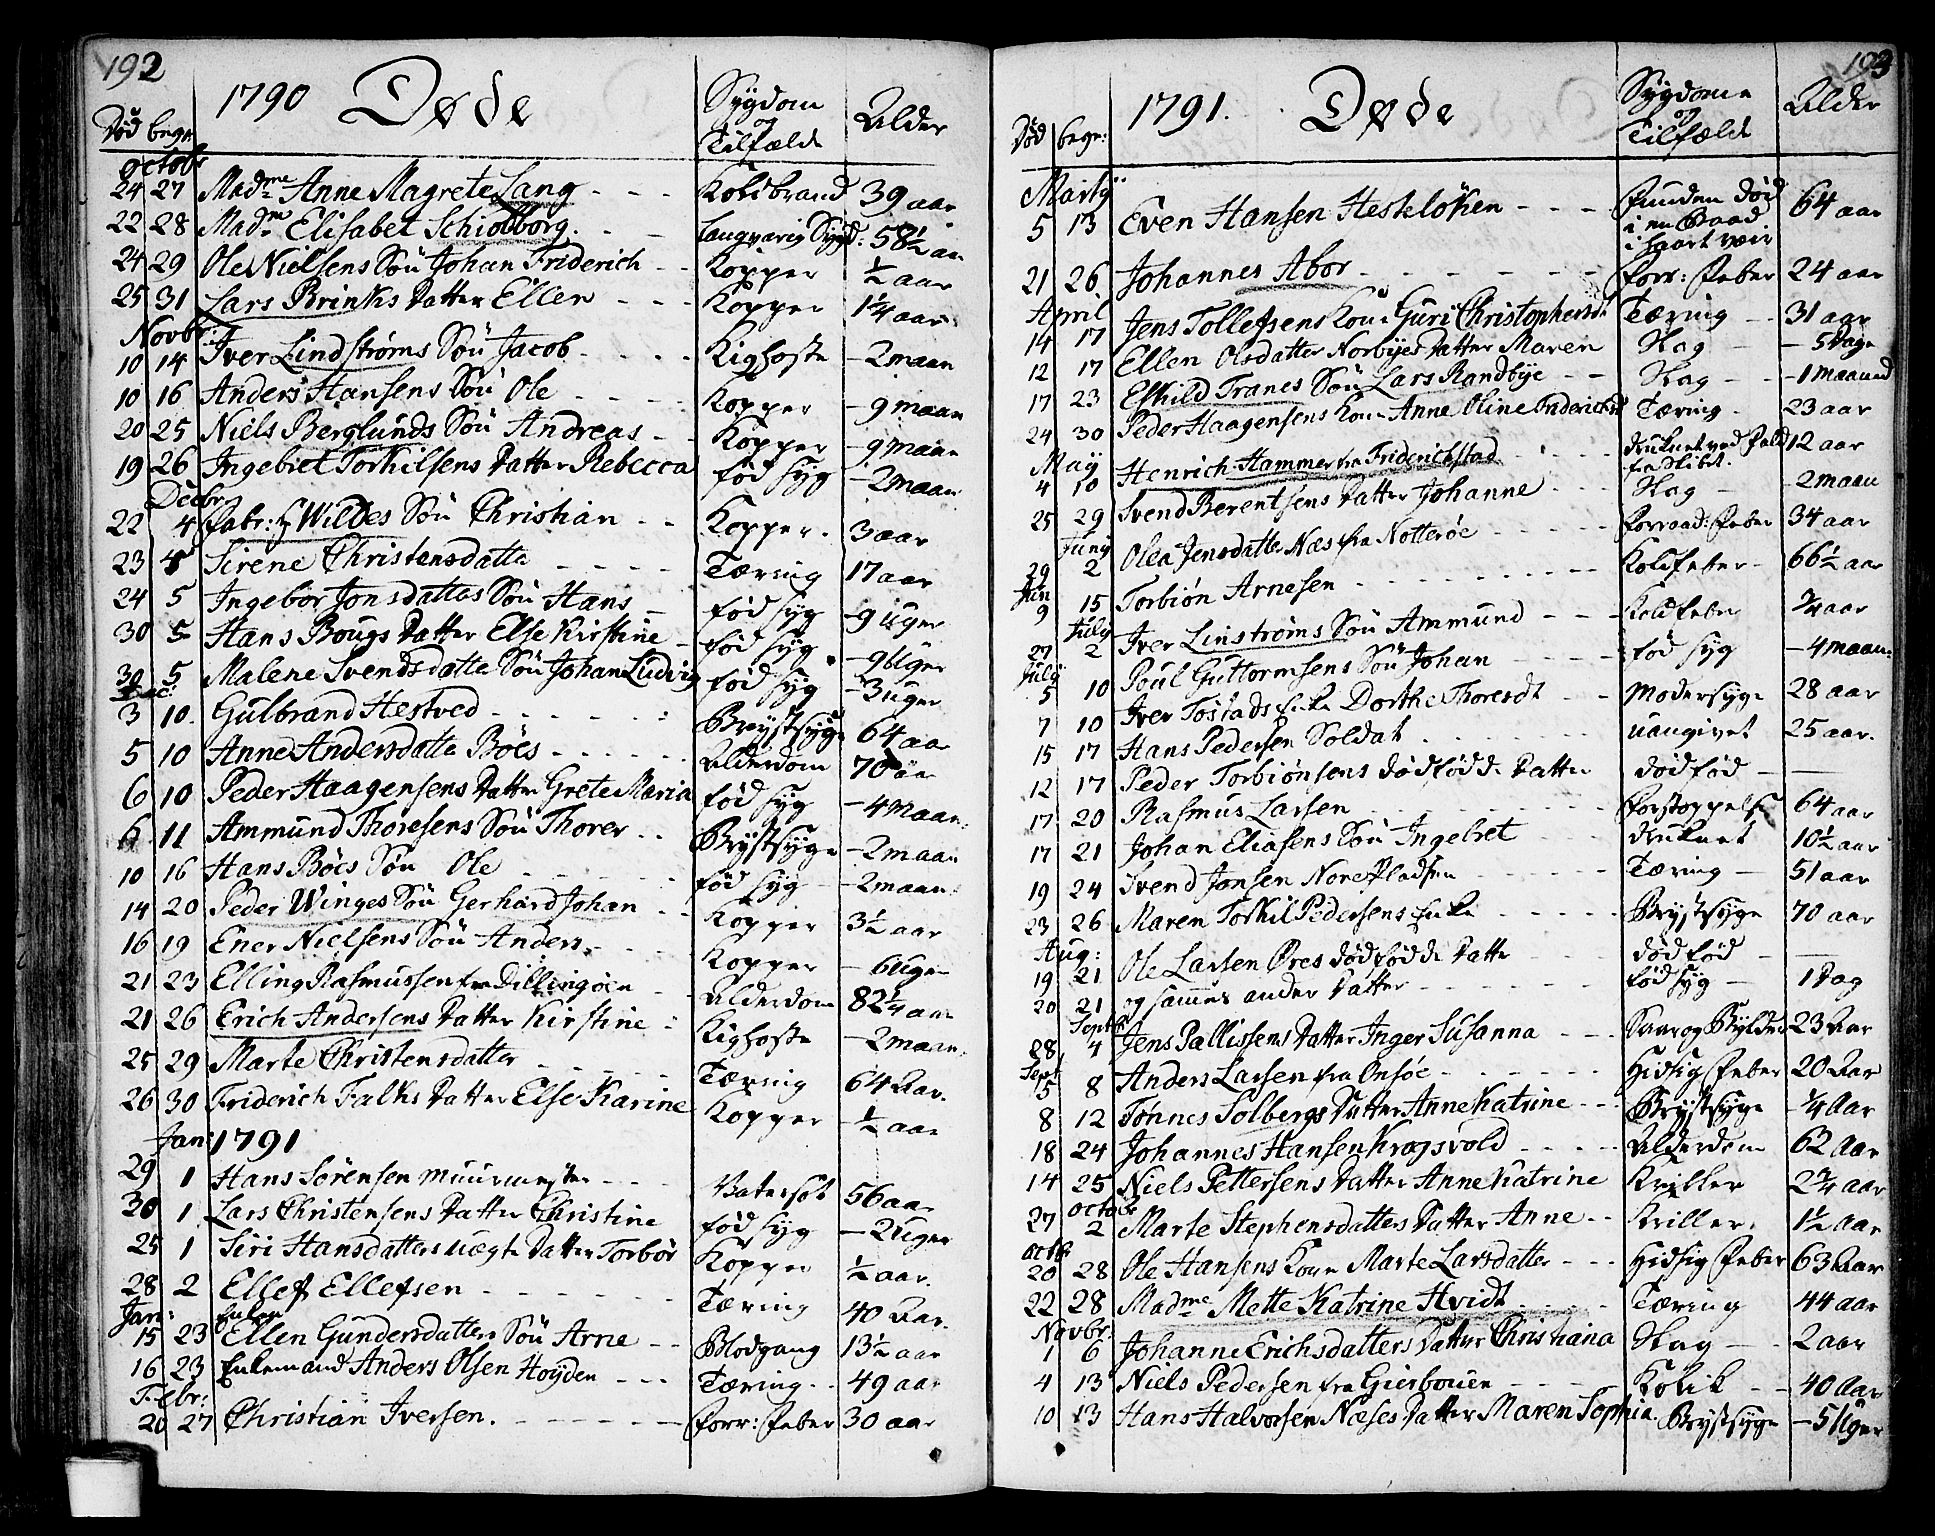 192
1790 Døde
Død begr: Sygdom og Tilfælde Alder
Octobr
24 27 Madme Anne Magrete Lang - - - Koldbrand 39 aar
22 28 Madme Elisabet Schiolborg. - - Langvarig Sygd: 58½ aar
24 29 Ole Nielsens Søn Johan Friderich - - Kopper ½ aar
25 31 Lars Brinks Datter Ellen - - - Kopper 1¼ aar
Novbr:
10 14 Iver Lindstrøms Søn Jacob - - - - Kighoste - 2 maan
10 16 Anders Hansens Søn Ole - - - - Kopper - 9 maan
20 25 Niels Berglunds Søn Andreas - - Kopper - 9 maan
19 26 Ingebret Torkilsens Datter Rebecca fød syg - 2 maan
Decbr
22 4 Fabr: Wildes Søn Christian - - Kopper. 3 aar
23 4 Sirene Christensdatte - - - - - Tæring 17 aar
24 5 Ingebor Jonsdattes Søn Hans - fød syg - 9 uger
30 5 Hans Bougs Datter Else Kirstine - fød syg - 9 Uger
30 5 Malene Svendsdatte Søn Johan Ludvig fød syg - 3 uger
Dec:
3 10. Gulbrand Hestved - - - - - - Brystsyge 64 aar
5 10 Anne Andersdatte Böes - - - - - Alderdom 70 aar
6 10 Peder Haagensens Datter Grete Maria fød syg - 4 Maan:
6 11 Ammund Thoresens Søn Thorer - - Brystsyge - 2 maan
10 16 Hans Böes Søn Ole - - - - - fød syg - 2 maan:
14 20 Peder Winges Søn Gerhard Johan - - Kopper 3½ aar
16 19 Ener Nielsens Søn Anders - - - Kopper - 6 Uger
21 23 Elling Rasmussen fra Dillingöen - - Alderdom 82¼ aar
21 26 Erich Andersens Datter Kirstine - Kighoste - 2 maan:
25 29 Marte Christensdatter - - - - - Tæring 64 Aar.
26 30 Friderich Falks Datter Else Karine Kopper - ½ aar
Jan: 1791
29 1 Hans Sörensen Muurmester - - - Vatersot 56 aar
30 1 Lars Christensens Datter Christine fød syg - 2 Uger
25 1 Siri Hansdatters uægte Datter Torbör Kopper ½ aar.
28 2 Ellef Ellefsen - - - - - - Tæring 40 Aar.
Jan: Enken
15 23 Ellen Gundersdatters Søn Arne - - Blodgang 13½ aar
16 23 Enkemand Anders Olsen Höyden - - - Tæring - - 49 aar
Febr:
20 27 Christian Iversen. - - - - - - forr: Feber 30 aar
193
1791. Døde
Død begr: Sygdom og Tilfælde Alder
Martij
5 13 Even Hansen Heskelöken - - - funden død i en Baad i haart veir 64 aar
21 26 Johannes Abor - - - - - - forr: Feber 24 aar
April
14 17 Jens Tollefsens Kone Guri Christophersdt Tæring - - 31 aar
12 17 Ellen Olsdatter Norbyes Datter Maren Slag - - 5 Dage
17 23 Eskild Tranes Søn Lars Randbye - - Slag - - - 1 maaned
24 30 Peder Haagensens Kone Anne Oline Friderichsdt Tæring - 23 aar
May
4 10 Henrich Hammer fra Friderichstad - - - druknet ved Fald fra Skibet. 12 aar
25 29 Svend Berentsens Datter Johanne - - - Slag - - 2 maan
Junij
29 2 Olea Jensdatter Næs fra Nötteröe - - - - forraad: Feber 34 aar
Jun
9 15 Torbiön Arnesen - - - - - - - - - Koldfeber - 66½ aar
July
27 2 Iver Linströms Søn Ammund - - - Koldfeber ¾ aar
July
5 10 Poul Guttormsens Søn Johan - - - fød syg - 4 maan:
7 10 Iver Tostads Enke Dorthe Thoresdt - - Modersyge 28 aar
15 17 Hans Pedersen Soldat - - - - - - uangivet 25 aar.
12 17 Peder Torbiönsens dödfödde Datter dödfød - -
17 20 Rasmus Larsen - - - - - - - forstoppelse 64 aar
17 21 Johan Eliasens Søn Ingebret - - - druknet 10½ aar
19 24 Svend Jonsen Nore Pladsen - - - - Tæring - 51 aar
23 26 Maren Torkil Pedersens Enke - - - - - Brystsyge 70 aar
Aug:
19 21 Ole Larsen Öres dødfødde Datte - - - dödfød -
20 21 og sammes anden Datter - - - - - - fødsyg - 1 Dag
Septbr
28 4 Jens Pallissens Datter Inger Susanna - - - Saar og Bylder 23 Aar
Sept
15 8 Anders Larsen fra Onsöe - - - - - - Hidsig Feber 20 Aar
8 12 Tönnes Solbergs Datter Anne Katrine - - - Brystsyge - ¼ Aar
18 24 Johannes Hansen Krogsvold - - - - - Alderdom 62 Aar
14 25 Niels Pettersens Datter Anne Katrine Kriller 2¾ aar
Octobr
27 2 Marte Stephensdatters Datter Anne - - Kriller 1½ Aar
Octbr
20 28 Ole Hansens Kone Marte Larsdatter - - - Hidsig Feber 63 Aar
22 28 Madme Mette Katrine Hvidt - - - - Tæring 44 aar
Novbr:
1 6 Johanne Erichsdatters Datter Christiana Slag - - 2 aar
4 13 Niels Pedersen fra Gierbouen - - - - Kolik - - 40 Aar
10 13 Hans Halvorsen Næses Datter Maren Sophia. Brystsyge - 5 Uger